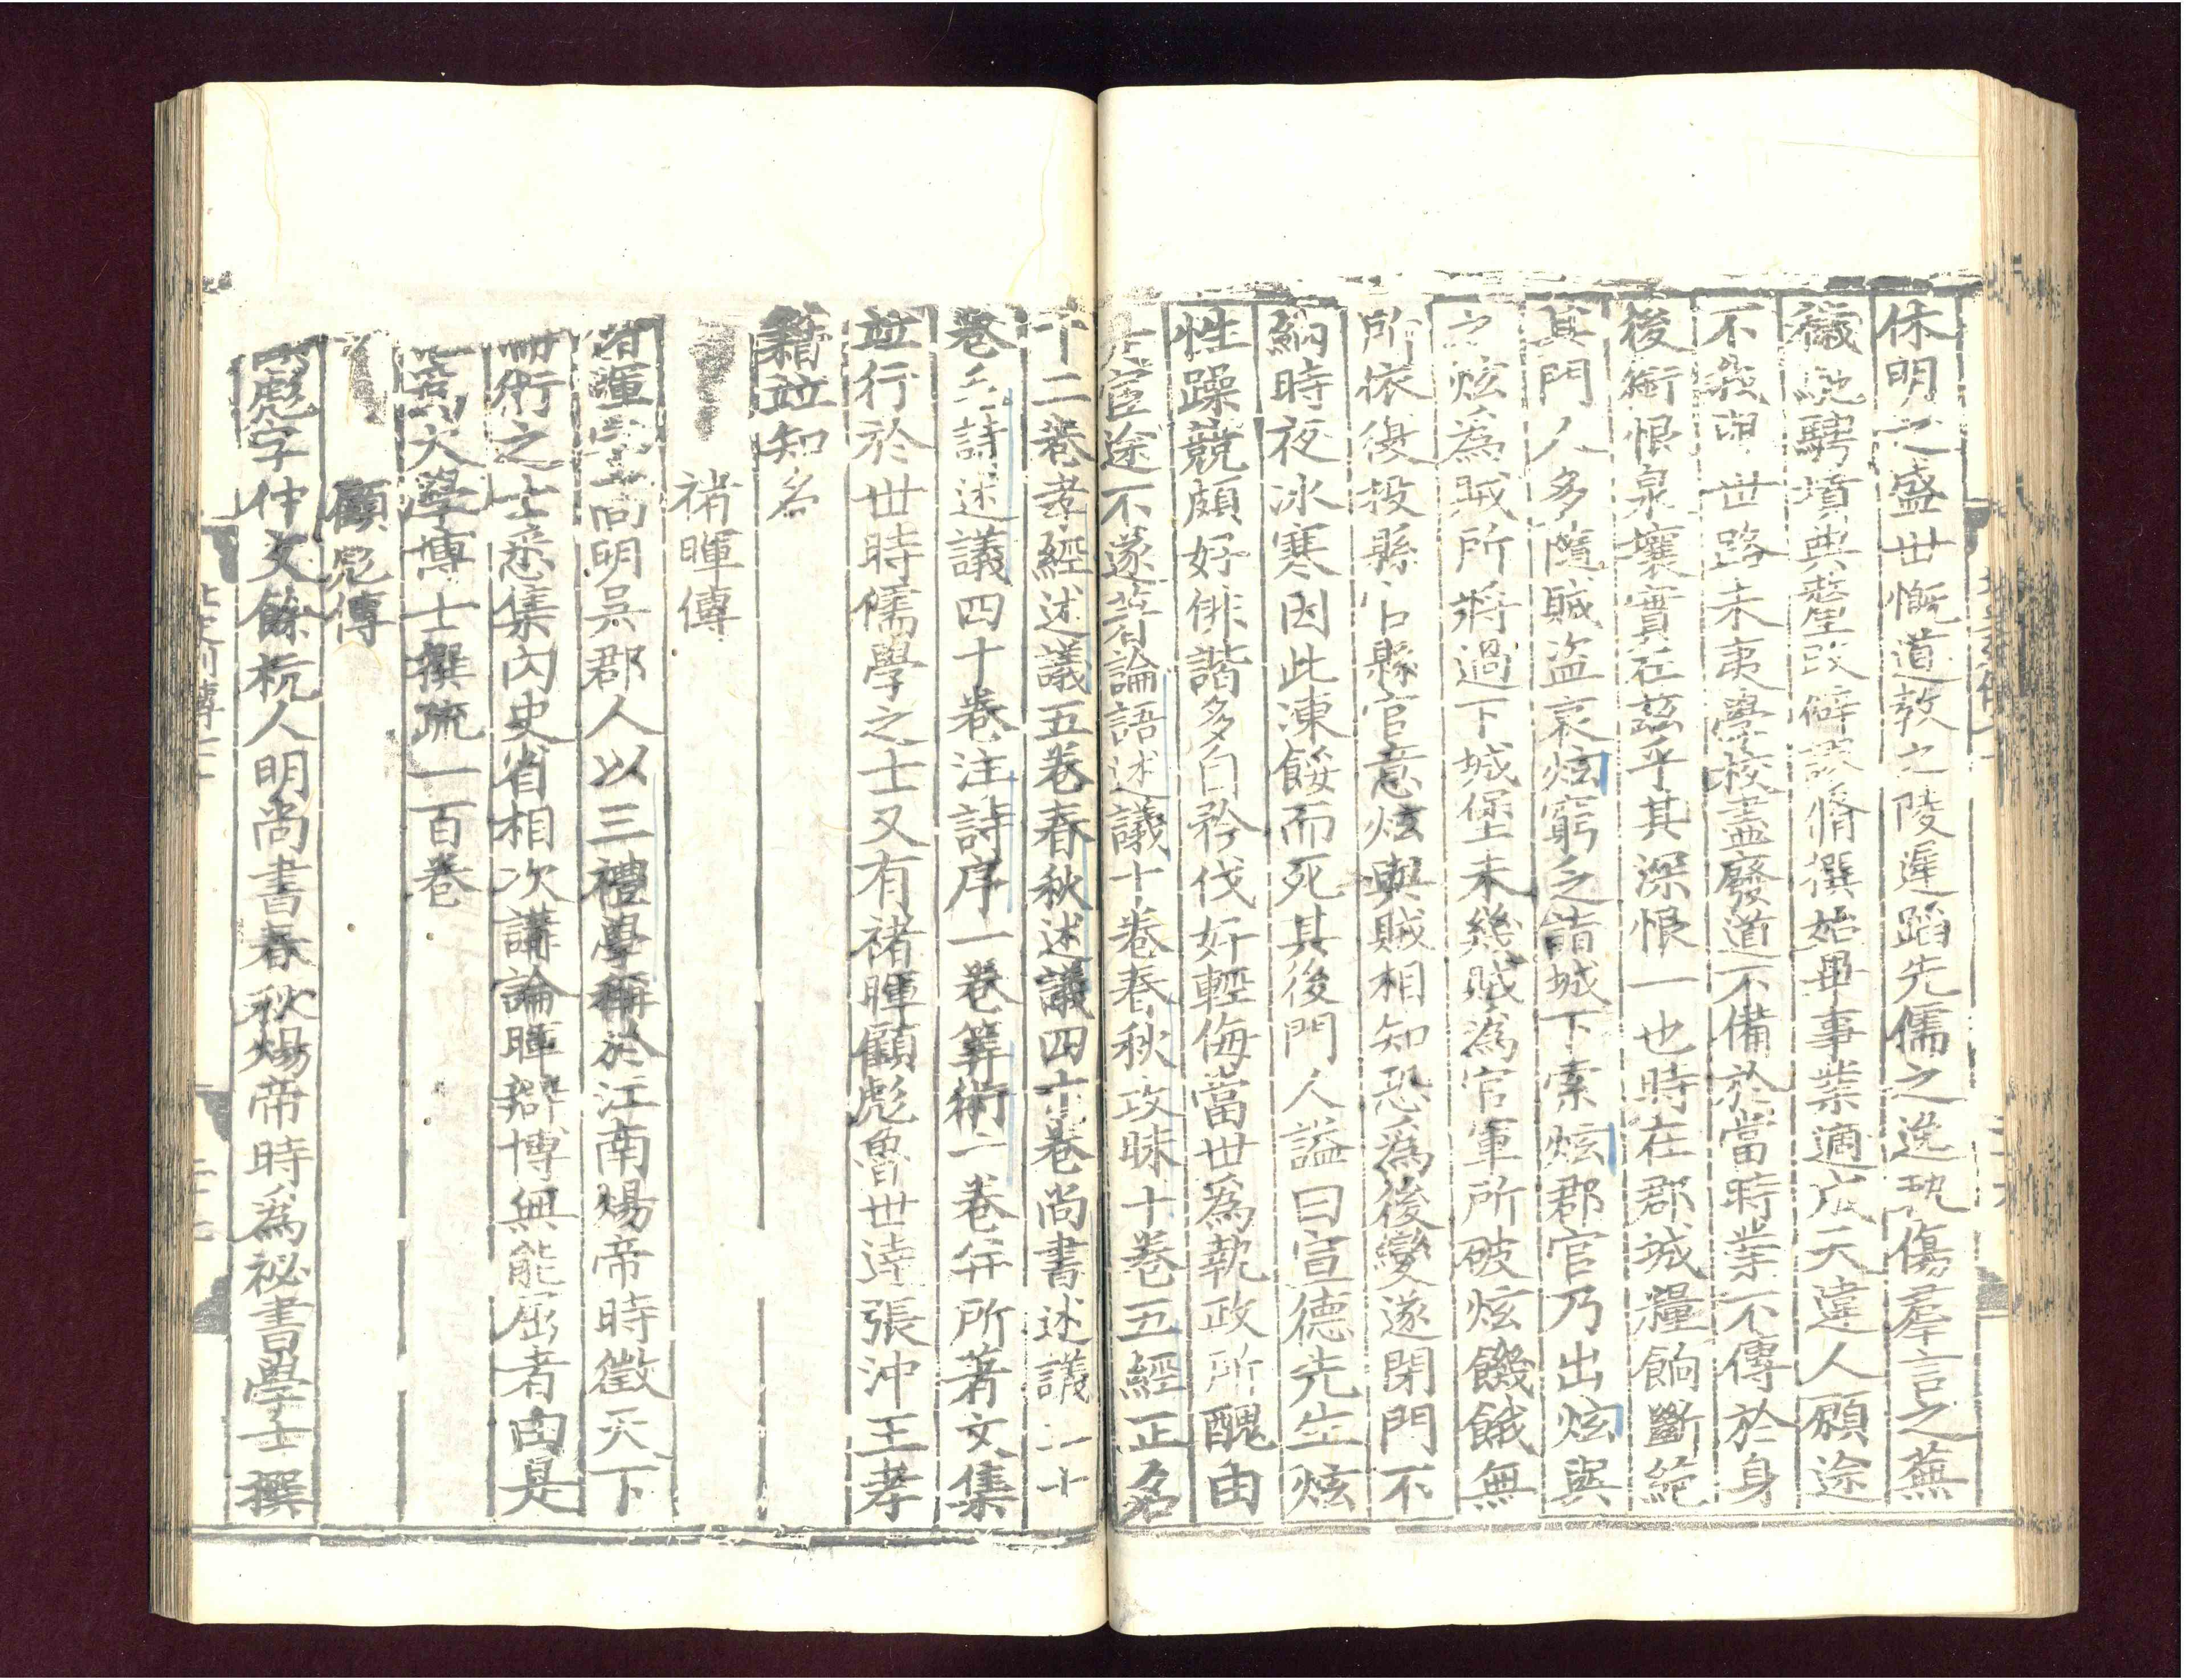 休明之盛世慨道教之陵遲蹈先儒之逸軌傷羣言之蕪
穢馳騁墳典釐改僻謬脩撰始畢事業適成天違人願途
不我與世路未夷學校盡廢道不備於當時業不傳於身
後銜恨泉壤實在茲乎其深恨一也時在郡城糧餉斷絕
其門人多隨賊盜哀炫窮乏詣城下索炫郡官乃出炫與
之炫爲賊所將過下城堡未幾賊爲官軍所破炫饑餓無
所依復投縣官縣官意炫與賊相知恐爲後變遂閉門不
納時夜冰寒因此凍餒而死其後門人謚曰宣德先生炫
性躁競頗好俳諧多自矜伐好輕侮當世爲執政所醜由
是宦途不遂著論語述議十卷春秋攻昧十卷五經正名
十二卷孝經述議五卷春秋述議四十卷尚書述議二十
卷毛詩述議四十卷注詩序一卷筭術一卷并所著文集
並行於世時儒學之士又有褚暉顧彪魯世逹張沖王孝
籍並知名
褚暉傳
褚暉字高明吳郡人以三禮學稱於江南煬帝時徵天下
儒術之士悉集內史省相次講論暉辯博無能屈者由是
爲太學博士撰疏一百卷
顧彪傳
彪字仲文餘杭人明尚書春秋煬帝時爲祕書學士撰
北史列傳
二十七